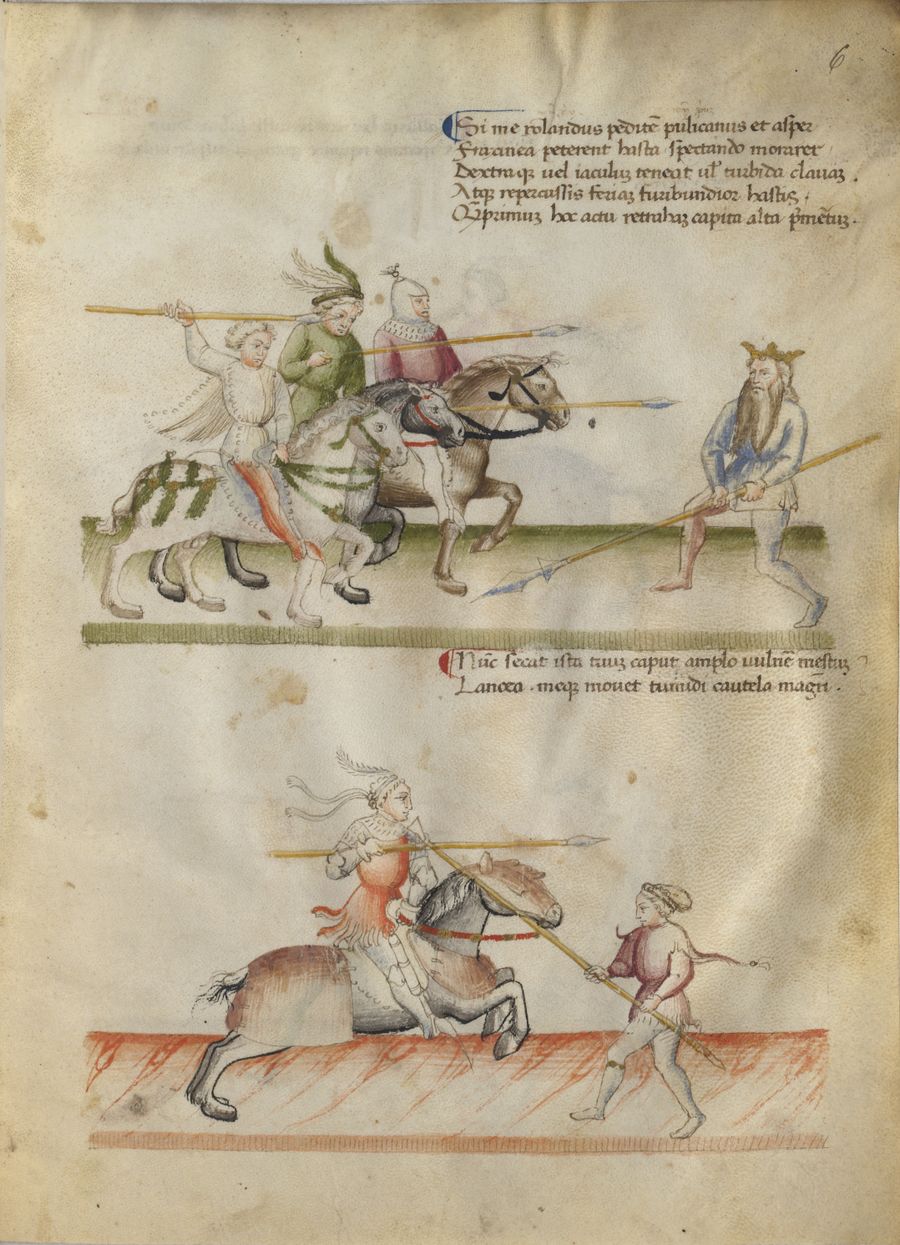 6
Si me rolandus peditē pulicanus et asper
Fraxinea peterent hasta spectando morarer
Dextraque uel iaculum teneat ul' turbida clauam .
Atque repercussis feriam furibundior hastis .
Qprimum hoc actu retraham capita alta p̄mētum .
Nūc secat ista tuum caput amplo uulnē mestum
Lancea . meque mouet tumidi cautela magr̄i .